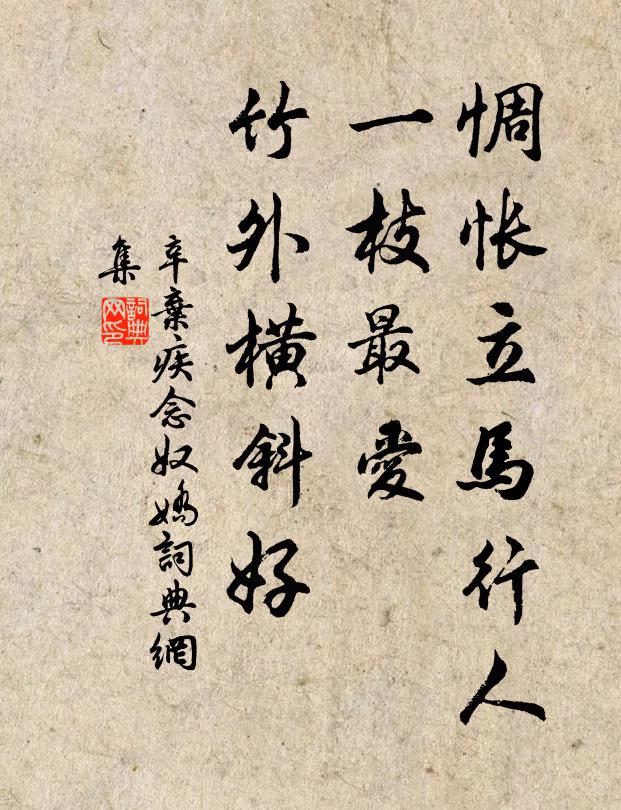 惆怅立馬行人
一枝最愛
竹外横斜好
辛棄疾念奴嬌詞典網
集
詞典
网印